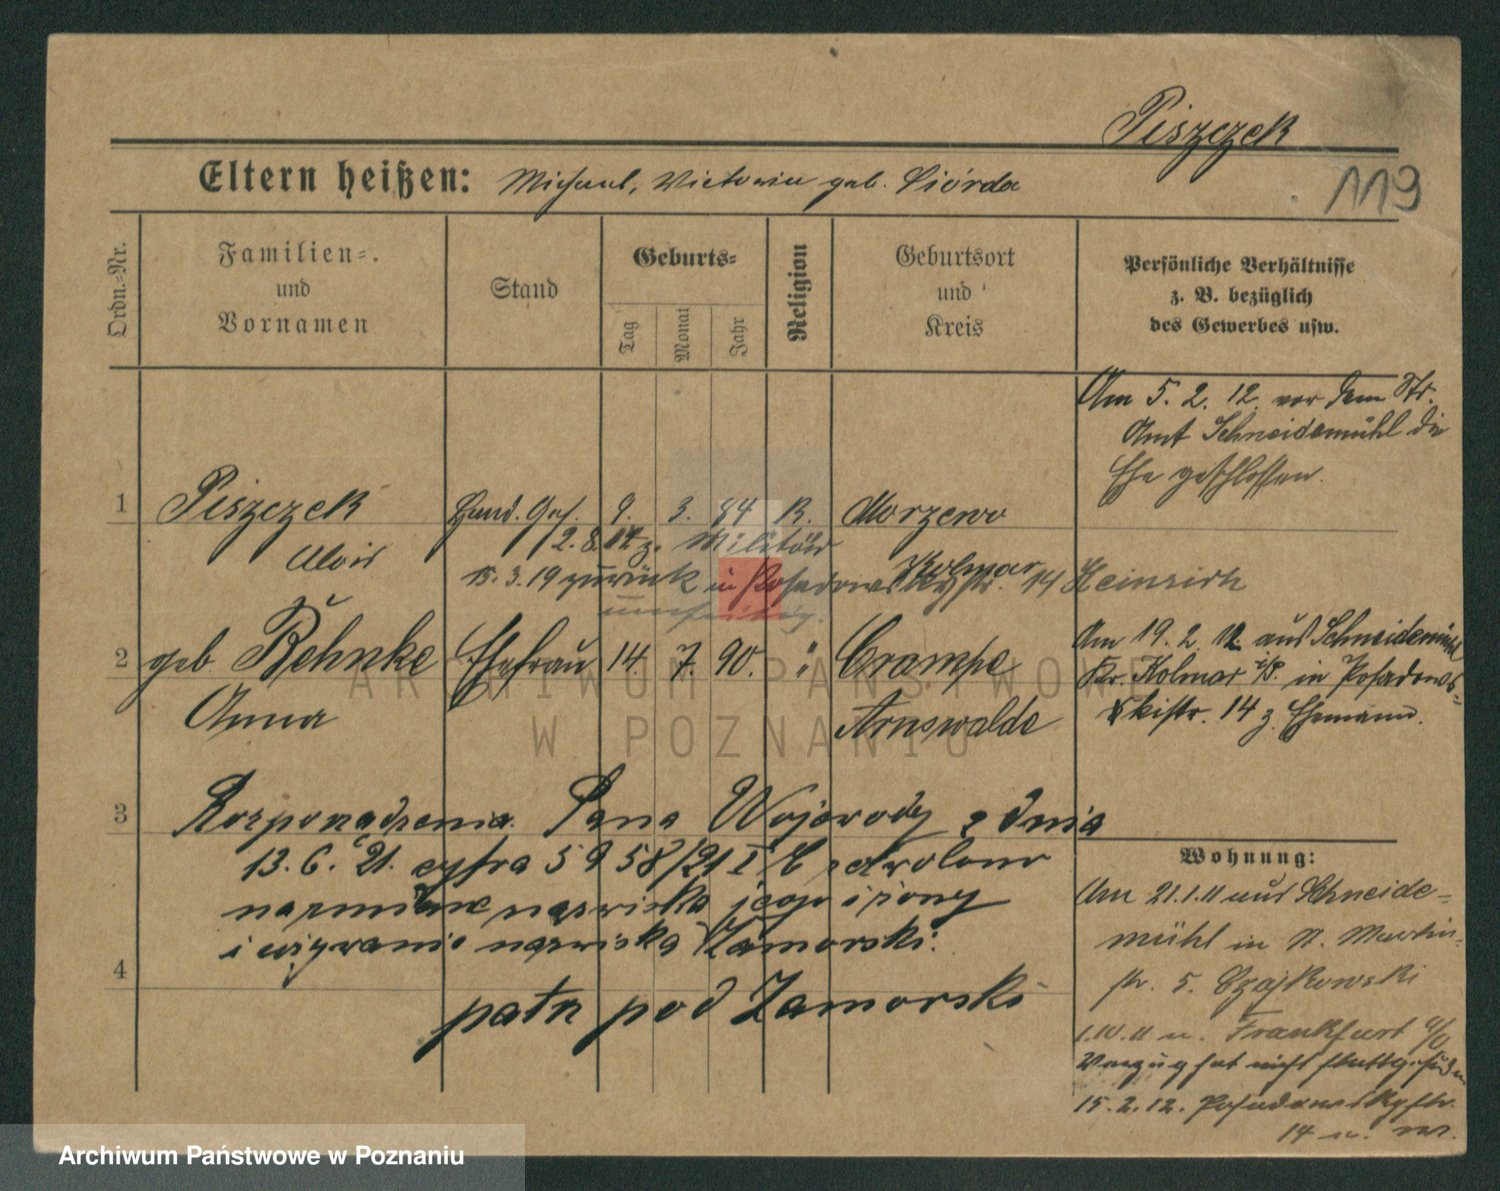 Piszczek
119
Eltern heißen: Michael, Victoria geb. Siórda
Ordn.=Nr.
Familien=
und
Vornamen
Stand
Geburts=
Tag
Monat
Jahr
Religion
Geburtsort
und
Kreis
Persönliche Verhältnisse
z. B. bezüglich
des Gewerbes usw.
Am 5. 2. 12. vor dem St.
Amt Schneidemühl die
Ehe geschlossen.
1 Piszczek Hand. Geh. 9. 3. 84 K. Morzewo
Alois
Kolmar
2. 8. 14 z. Militär
15. 3. 19 zurück in Posadowskystr. 14 Heinrich
2 geb Behnke Ehefrau 14. 7. 90. " Crampe
Anna Arnswalde
Am 19. 2. 12 aus Schneidemühl
Kr. Kolmar i/P. in Posadows=
kistr. 14 z. Ehemann.
3 Rozporządzenia Pana Wojewody z dnia
13. 6. 21. cyfra 5958/21 I C zezwolono
na zmianę nazwiska jego i żony
i używanie nazwiska Zamorski.
4
patrz pod Zamorski
Wohnung:
Am 21.1.11 aus Schneide=
mühl in St. Martin=
str. 5. Czajkowski
1.10.11 n. Frankfurt a/O
Verzug hat nicht stattgefunden
15. 2. 12. Posadowskystr.
14
ARCHIWUM PAŃSTWOWE
W POZNANIU
Archiwum Państwowe w Poznaniu